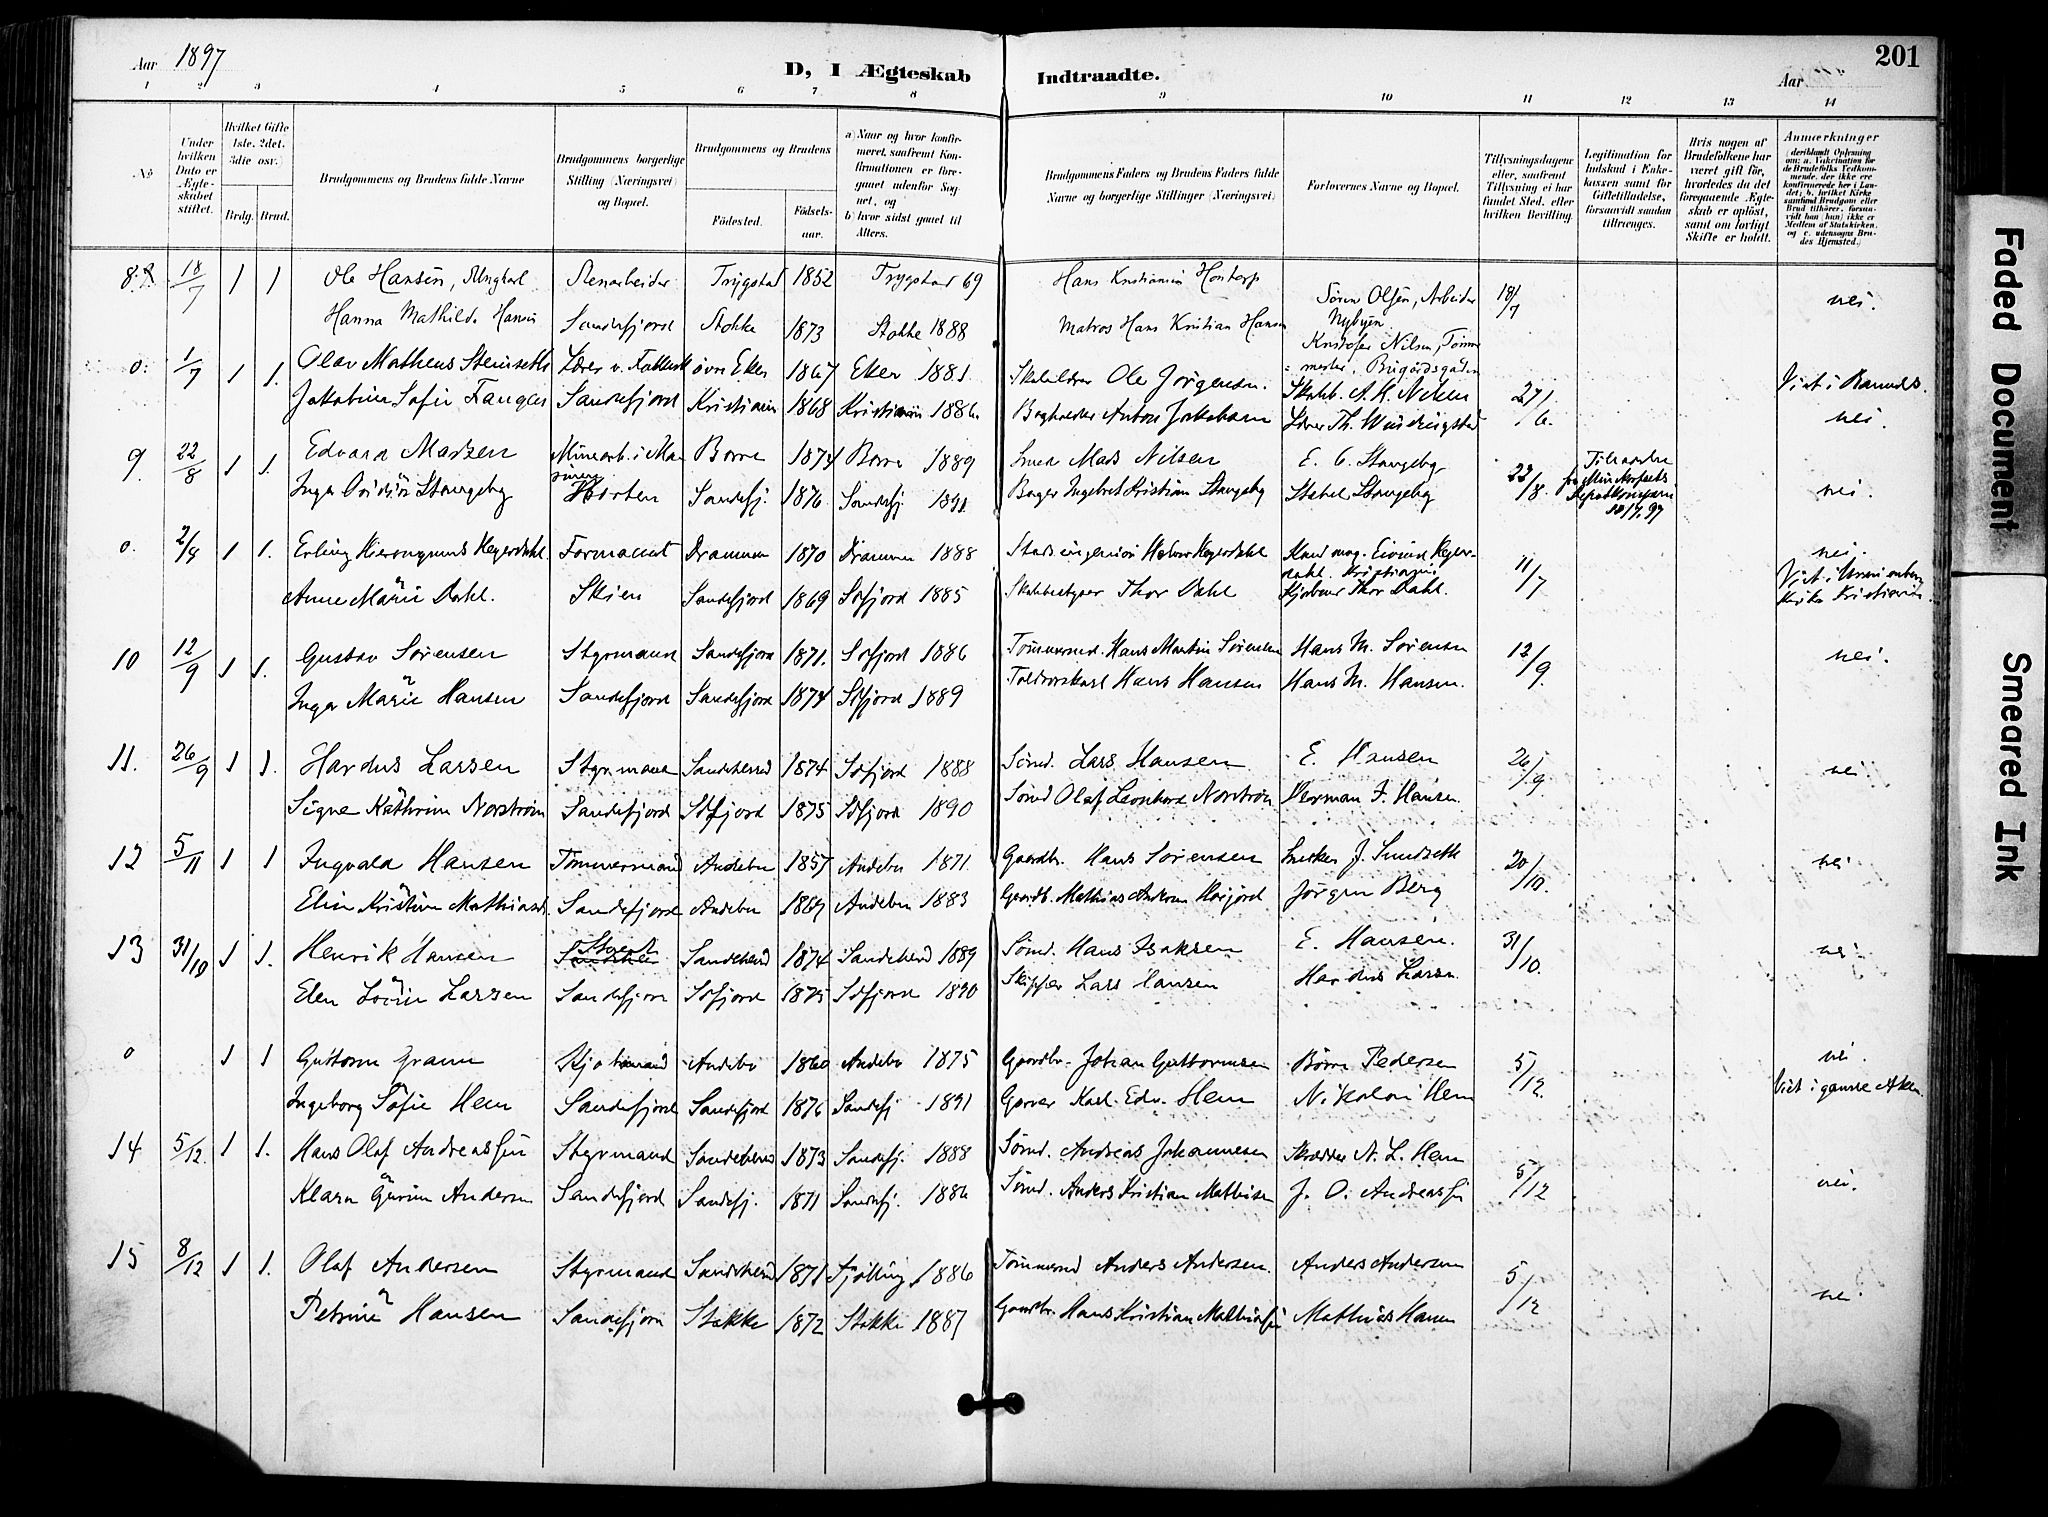 Aar 1897
D, I Ægteskab Indtraadte.
Aar
201
1 2 3 4 5 6 7 8 9 10 11 12 13 14
No
Under hvilken Dato er Ægteskabet stiftet.
Hvilket Gifte 1ste, 2det, 3die osv.)
Brdg. Brud.
Brudgommens og Brudens fulde Navne
Brudgommens borgerlige Stilling (Næringsvei) og Bopæl.
Brudgommens og Brudens
Fødested. Fødselsaar.
a) Naar og hvor konfirmeret, saafremt Konfirmationen er foregaaet udenfor Sognet, og b) hvor sidst gaaet til Alters.
Brudgommens Faders og Brudens Faders fulde Navne og borgerlige Stillinger (Næringsvei)
Forlovernes Navne og Bopæl.
Tillysningsdagene eller, saafremt Tillysning ei har fundet Sted, efter hvilken Bevilling.
Legitimation for Indskud i Enkekassen samt for Giftetilladelse, forsaavidt saadan tiltrænges.
Hvis nogen af Brudefolkene har været gift før, hvorledes da det foregaaende Ægteskab er opløst, samt om lovligt Skifte er holdt.
Anmærkninger (deriblandt Oplysning om: a. Vakcination for de Brudefolks Vedkommende, der ikke ere konfirmerede her i Landet; b. hvilket Kirkesamfund Brudgom eller Brud tilhører, forsaavidt han (hun) ikke er Medlem af Statskirken, og c. udensogns Brudes Hjemsted.)
8. 18/7 1 1 Ole Hansen, Ungkarl Stenarbeider Trygstad 1852 Trygstad 69 Hans Kristiansen Søren Olsen, Arbeider 18/7 nei.
Hanna Mathilde Hansen Sandefjord Stokke 1873 Stokke 1888 Matros Hans Kristian Hansen Nybyen
Kristofer Nilsen, Tømmermester,
0. 1/7 1 1. Olav Matheus Steinseth Lærer øvre Eker 1867 Eker 1881. Ole Jørgensen. 27/6. Viet i
Jakobine Sofie Sandefjord Kristiania 1868 Kristiania 1886 Bogholder Anton Jakobsen Lærer Th. nei.
9. 22/8 1 1. Edvard Madsen Minearb. i Marinen Borre 1874 Borre 1889 Smed Mads Nilsen E. C. Stangeby 22/8.
Inga Stangeby Horten Sandefj. 1876. Sandefj. 1891 Bager Ingebret Kristian Stangeby Stangeby nei.
0. 2/8 1 1. Erling Hieronymus Heyerdahl. Formand Drammen 1870 Drammen 1888 Stadsingeniør Halvor Heyerdahl Kand. mag. Eivind Heyerdahl. Kristiania 11/7 nei.
Anne Marie Dahl. Skien Sandefjord 1869 Sdfjord 1885 Skibbestyrer Thor Dahl Thor Dahl. Viet i Uranienborg Kirke Kristiania
10 12/9 1 1. Gustav Sørensen Styrmand Sandefjord 1871. Sdfjord 1886 Tømmermd. Hans Martin Sørensen Hans M. Sørensen 12/9. nei.
Inga Marie Hansen Sandefjord Sandefjord 1874 Sdfjord 1889 Toldroerskarl Hans Hansen Hans M. Hansen.
11. 26/9 1 1. Hardus Larsen Styrmand Sandeherred 1874 Sdfjord 1888 Sømd. Lars Hansen E. Hansen 26/9 nei.
Signe Kathrine Norstrøm Sandefjord Sdfjord 1875 Sdfjord 1890 Sømd Olaf Leonhard Norstrøm Herman F. Hansen.
12 5/11 1 1 Ingvald Hansen Tømmermand Andebu 1857 Andebu 1871. Gaardbr. Hans Sørensen Snedker J. Sundseth 20/10. nei
Elin Kristine Mathiasd. Sandefjord Andebu 1869 Andebu 1883 Gaardb. Mathias Jørgen Berg
13 31/10 1 1. Henrik Hansen Styrmd Sandeherred 1874 Sandeherred 1889 Sømd. Hans Isaksen E. Hansen. 31/10. nei
Elen Lovise Larsen Sandefjord Sdfjord 1875 Sdfjord 1890 Skipper Lars Hansen Hardus Larsen
0 1 1 Guttorm Gran Andebu 1860 Andebu 1875 Gaardbr. Johan Guttormsen Børre Pedersen 5/12. nei.
Ingeborg Sofie Hem Sandefjord Sandefjord 1876 Sandefj 1891 Garver Karl Edv. Hem Nikolai Hem Viet i gamle Aker.
14 5/12. 1 1. Hans Olaf Andreassen Styrmand Sandeherred 1873 Sandefj. 1888 Sømd. Andreas Johannesen Skrædder N. L. Hem 5/12 nei.
Klara Gurine Andersen Sandefjord Sandefj. 1871 Sandefj. 1886 Sømd. Anders Kristian Mathisen J. O. Andreassen
15 8/12 1 1. Olaf Andersen Styrmand Sandeherred 1871 Tjølling 1886 Tømmermd Anders Andersen. Anders Andersen 5/12 nei
Petrine Hansen Sandefjord Stokke 1872 Stokke 1887 Gaardbr. Hans Kristian Mathiassen Mathias Hansen
Faded Document
Smeared Ink